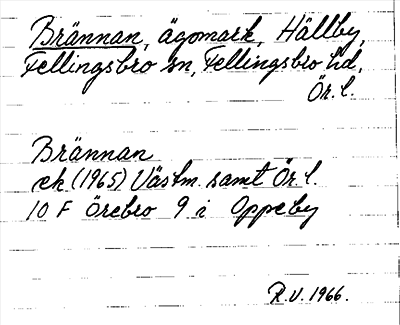 Brännan, ägomark, Hällby,
Fellingsbro sn, Fellingsbro hd,
Ör. l.
Brännan
ek (1965) Västm. samt Ör. l.
10 F Örebro 9 i Oppeby
R.V. 1966.